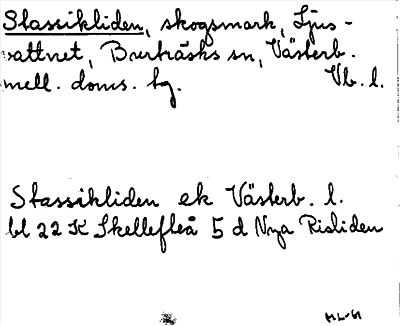 Stassikliden, skogsmark, Ljus-
vattnet, Burträsks sn, Västerb.
mell. doms. tg. Vb. l.
Stassikliden ek Västerb. l.
bl 22 K Skellefteå 5 d Nya Risliden